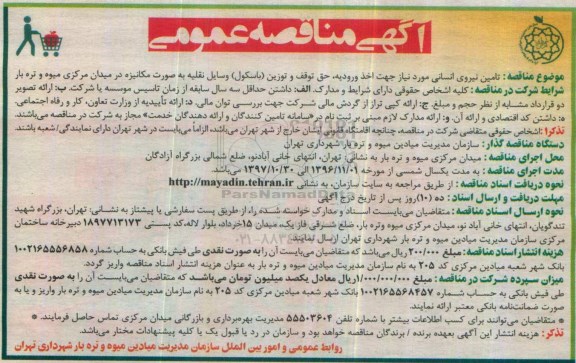 آگهی مناقصه عمومی
موضوع مناقصه: تامین نیروی انسانی مورد نیاز جهت اخذ ورودیه، حق توقف و توزین (باسکول) وسایل نقلیه به صورت مکانیزه در میدان مرکزی میوه و تره بار
شرایط شرکت در مناقصه: کلیه اشخاص حقوقی دارای شرایط و مدارک. الف: داشتن حداقل سه سال سابقه از زمان تاسیس موسسه یا شرکت. ب: ارائه تصویر
دو قرارداد مشابه از نظر حجم و مبلغ. ج: ارائه کپی تراز از گردش مالی شرکت جهت بررسی توان مالی. د: ارائه تأییدیه از وزارت تعاون، کار و رفاه اجتماعی.
ه: داشتن کد اقتصادی و ارائه آن. و: ارائه مدارک لازم مبنی بر ثبت نام در «سامانه تامین کنندگان و ارائه دهندگان خدمت» مجاز به شرکت در مناقصه می‌باشند.
تذکر: اشخاص حقوقی متقاضی شرکت در مناقصه، چنانچه اقامتگاه قانونی‌شان خارج از شهر تهران می‌باشد، الزاماً می‌بایست در شهر تهران دارای نمایندگی/شعبه باشند.
دستگاه مناقصه گذار: سازمان مدیریت میادین میوه و تره بار شهرداری تهران
محل اجرای مناقصه: میدان مرکزی میوه و تره بار به نشانی تهران، انتهای خانی آبادنو، ضلع شمالی بزرگراه آزادگان
مدت اجرای مناقصه: به مدت یکسال شمسی از مورخه ۱۳۹۶/۱۱/۰۱ الی ۱۳۹۷/۱۰/۳۰ می‌باشد.
نحوه دریافت اسناد مناقصه: از طریق مراجعه به سایت سازمان، به نشانی http://mayadin.tehran.ir
مهلت دریافت و ارسال اسناد: ده (۱۰) روز پس از تاریخ درج آگهی
نحوه ارسال اسناد مناقصه: متقاضیان می‌بایست اسناد و مدارک خواسته شده را، از طریق پست سفارشی یا پیشتاز به نشانی: تهران، بزرگراه شهید
تندگویان، انتهای خانی آباد نو، میدان مرکزی میوه و تره بار، ضلع شرقی فاز یک، میدان ۱۵خرداد، بلوار لاله، کد پستی ۱۸۹۷۷۱۳۱۷۳ دبیرخانه ساختمان
مرکزی سازمان مدیریت میادین میوه و تره بار شهرداری تهران ارسال نمایند.
هزینه انتشار اسناد مناقصه: مبلغ ۲۰۰/۰۰۰ ریال می‌باشد که متقاضیان می‌بایست آن را به صورت نقدی طی فیش بانکی به حساب شماره ۱۰۰۲۱۶۵۵۵۶۸۵۸
بانک شهر شعبه میادین مرکزی کد ۲۰۵ به نام سازمان مدیریت میادین میوه و تره بار به عنوان هزینه انتشار اسناد مناقصه واریز گردد.
میزان سپرده شرکت در مناقصه: مبلغ ۱/۰۰۰/۰۰۰/۰۰۰ ریال معادل یکصد میلیون تومان می‌باشد که متقاضیان می‌بایست آن را به صورت نقدی
طی فیش بانکی به حساب شماره ۱۰۰۲۱۶۵۵۶۸۴۵۷ بانک شهر شعبه میادین مرکزی کد ۲۰۵ به نام سازمان مدیریت میادین میوه و تره بار واریز و یا به
صورت ضمانت‌نامه بانکی معتبر ارائه نمایند.
* متقاضیان می‌توانند برای کسب اطلاعات بیشتر با شماره تلفن ۵۵۵۰۳۶۰۴ مدیریت بهره‌برداری و بازرگانی میدان مرکزی تماس حاصل فرمایند. *
تذکر: هزینه انتشار این آگهی بعهده برنده / برندگان مناقصه خواهد بود و سازمان در رد یا قبول یک یا کلیه پیشنهادات مختار می‌باشد.
روابط عمومی و امور بین الملل سازمان مدیریت میادین میوه و تره بار شهرداری تهران